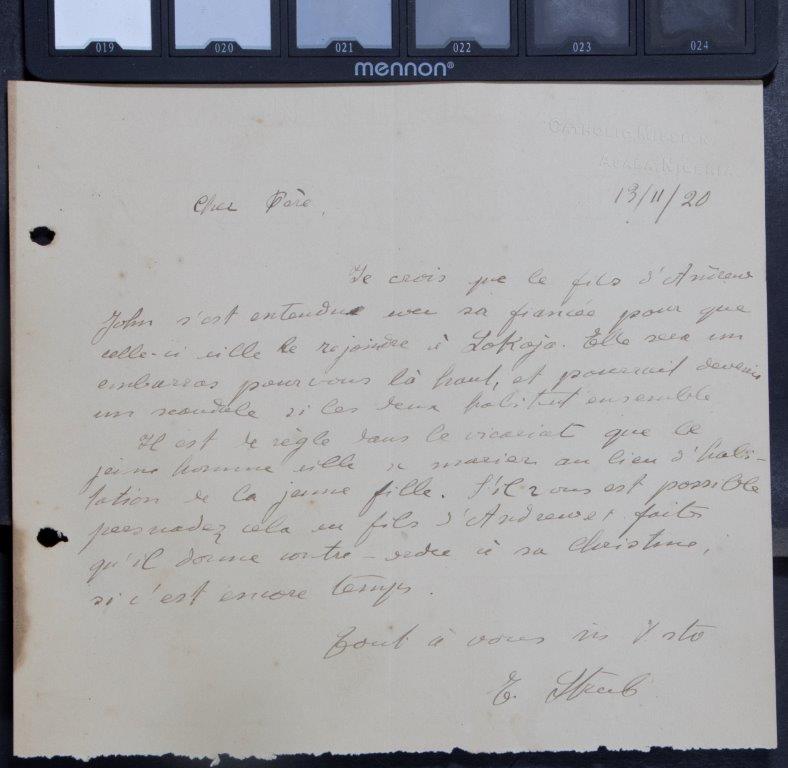 019 020 021 022 023 024
mennon®
CATHOLIC MISSION
ASABA, NIGERIA
13/11/20
Cher Père,
Je crois que le fils d'Andrew
John s'est entendue avec sa fiancée pour que
celle-ci aille le rejoindre à Lokoja. Elle sera un
embarras pour vous là haut, et pourrait devenir
un scandale si les deux habitent ensemble
Il est de règle dans le vicariat que le
jeune homme aille se marier au lieu d'habi-
tation de la jeune fille. S'il vous est possible
persuadez cela au fils d'Andrew et faites
qu'il donne contre-ordre à sa Christine,
si c'est encore temps.
Tout à vous in Xsto
E. Strub